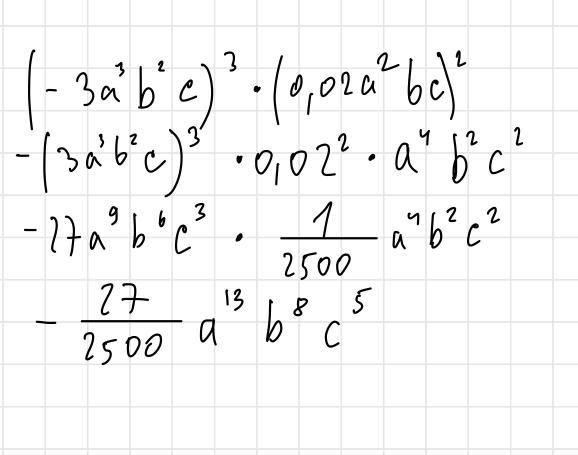 (-3a³b²c)³ · (0,02a²bc)²
-(3a³b²c)³ · 0,02² · a⁴ b² c²
-27a⁹b⁶c³ · 1/2500 a⁴b²c²
- 27/2500 a¹³ b⁸ c⁵